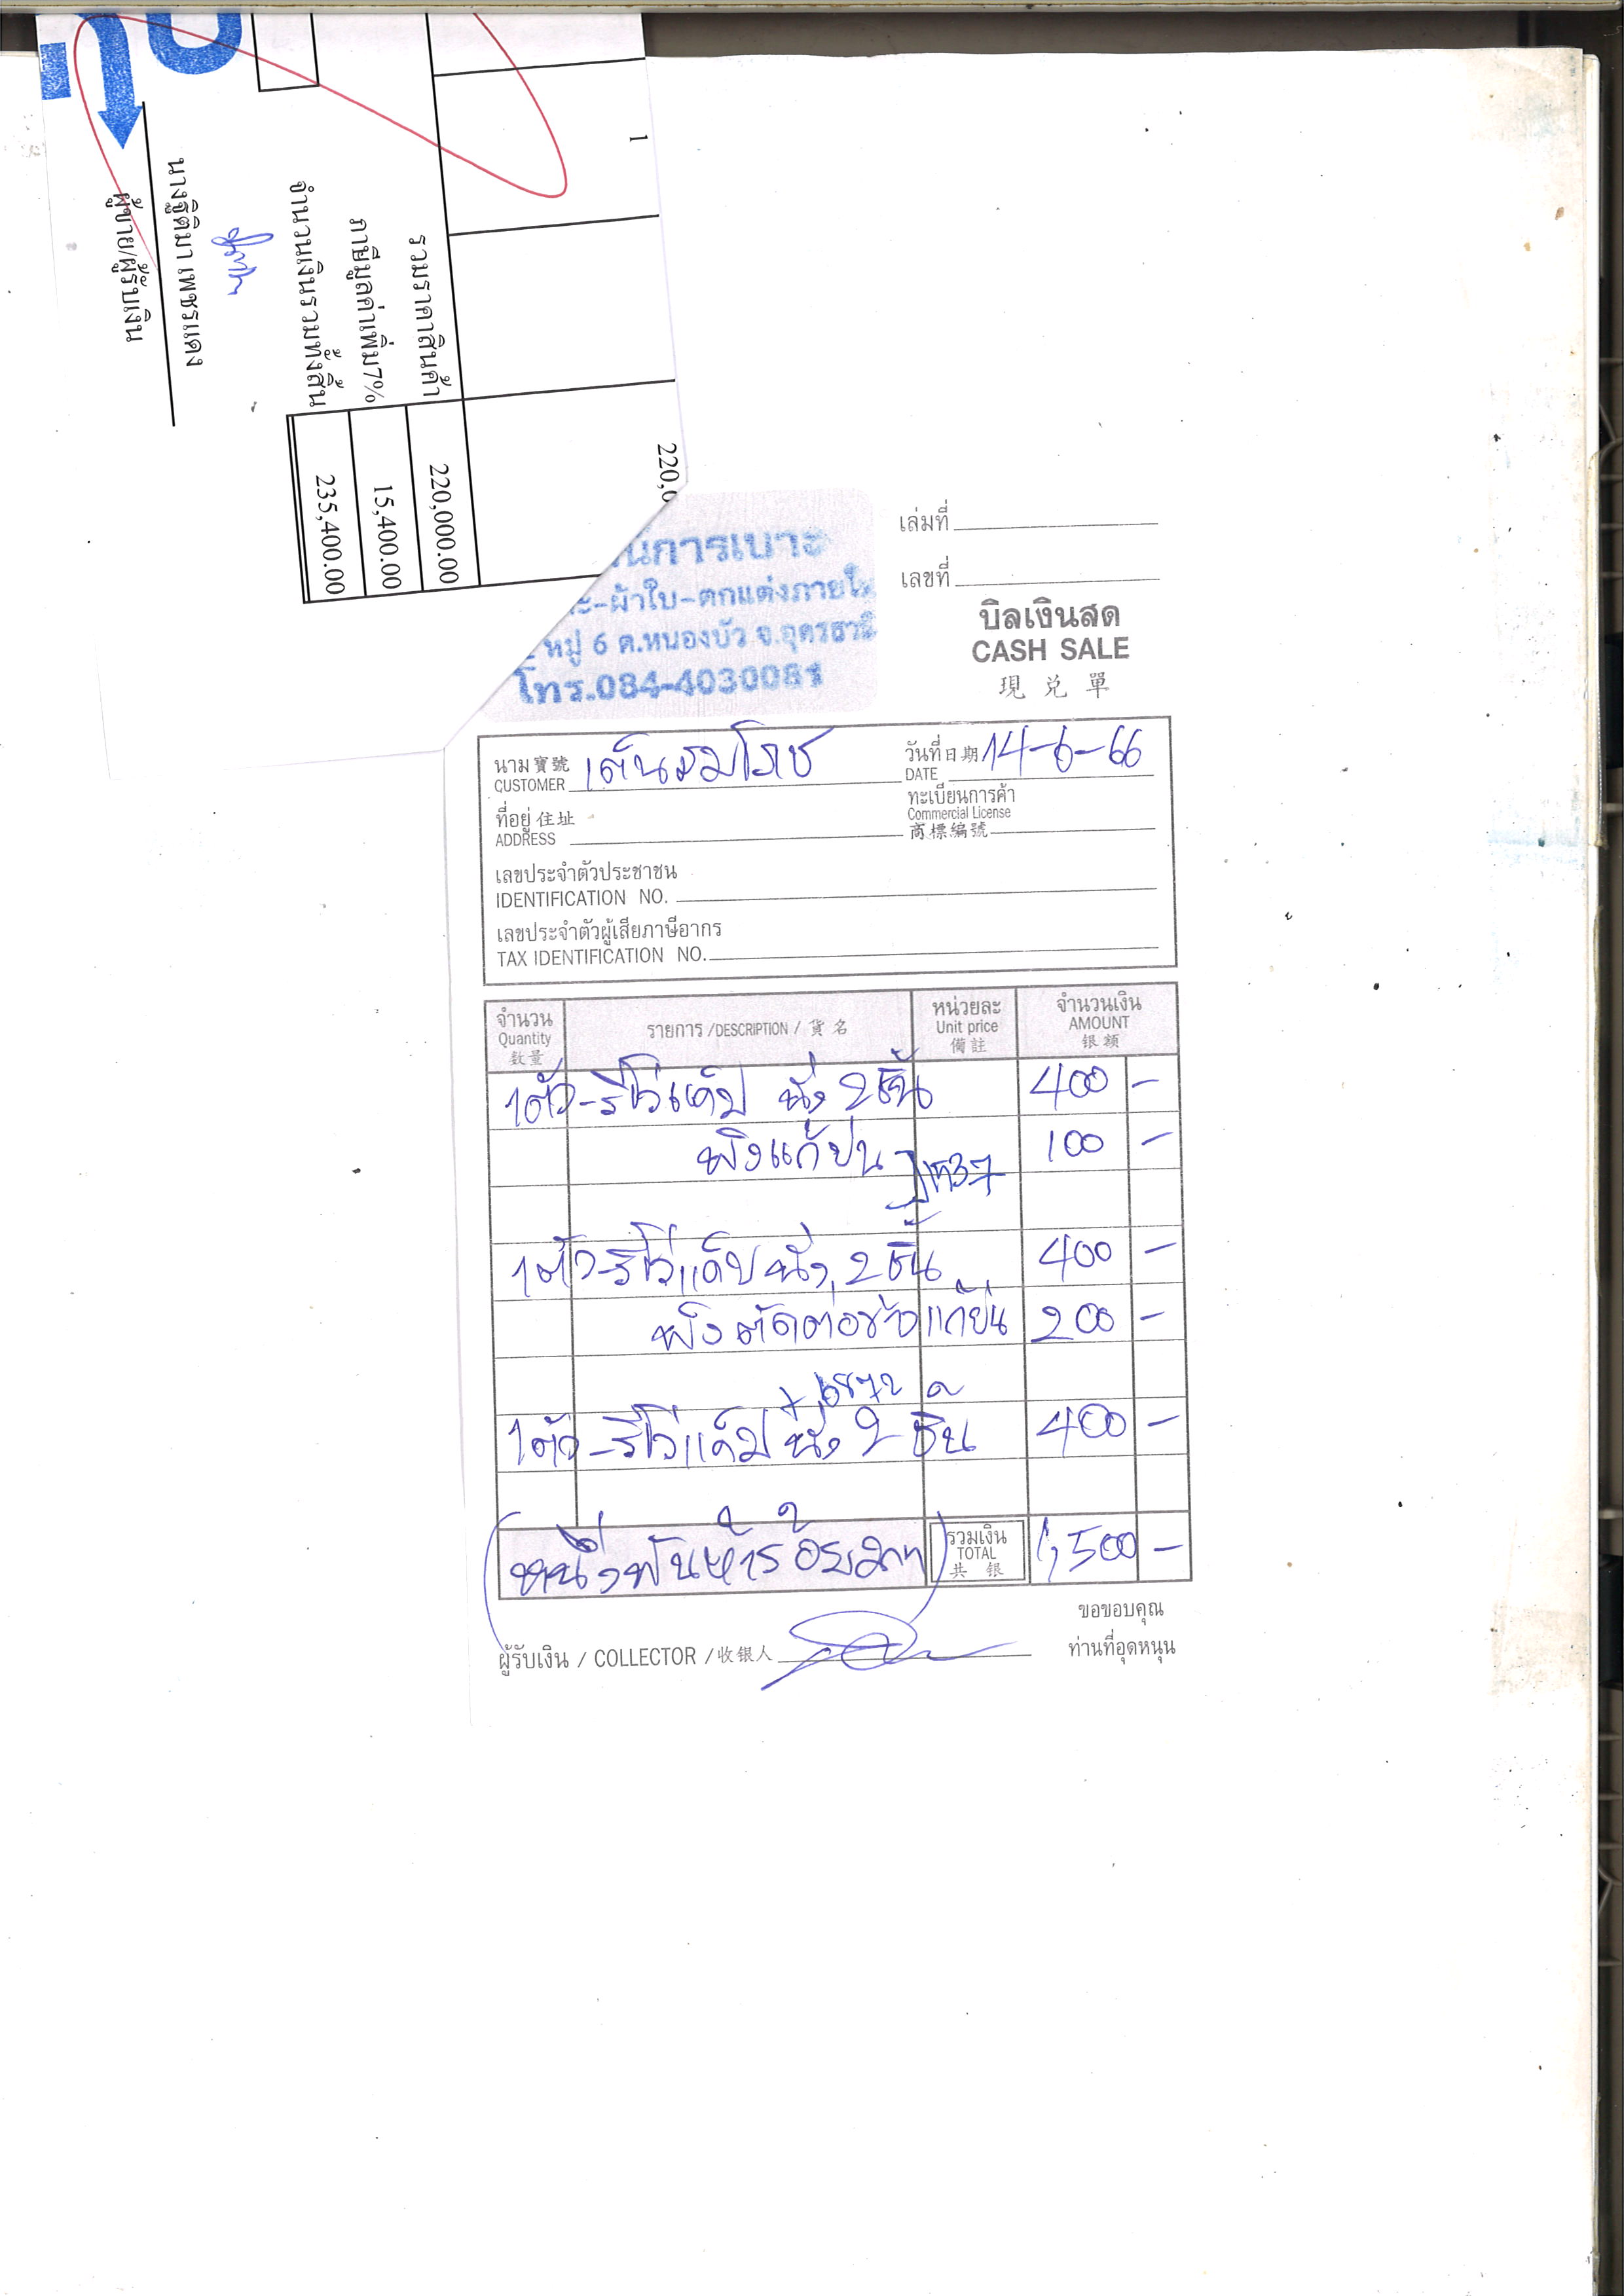 1
220,0
รวมราคาสินค้า 220,000.00
ภาษีมูลค่าเพิ่ม7% 15,400.00
จำนวนเงินรวมทั้งสิ้น 235,400.00
นางฐิติมา เพชรแดง
ผู้ขาย/ผู้รับเงิน
นการเบาะ
ะ-ผ้าใบ-ตกแต่งภายใ
หมู่ 6 ต.หนองบัว จ.อุดรธานี
โทร.084-4030081
เล่มที่
เลขที่
บิลเงินสด
CASH SALE
現兌單
นาม 寶號 เต็นสมโภช
CUSTOMER
วันที่ 日期 14-6-66
DATE
ที่อยู่ 住址
ADDRESS
ทะเบียนการค้า
Commercial License
商標編號
เลขประจำตัวประชาชน
IDENTIFICATION NO.
เลขประจำตัวผู้เสียภาษีอากร
TAX IDENTIFICATION NO.
จำนวน รายการ /DESCRIPTION / 貨名 หน่วยละ จำนวนเงิน
Quantity Unit price AMOUNT
数量 備註 银額
1ตัว-รีโว่แค็ป นั่ง 2ชิ้น 400 -
พิงแก้ปูน 100 -
1ตัว-รีโว่แค็ป นั่ง 2 ชิ้น 400 -
พิงตัดต่อข้าง แก้ปูน 200 -
6872
1ตัว-รีโว่แค็ป นั่ง 2 ชิ้น 400 -
(หนึ่งพันห้าร้อยบาท) รวมเงิน 1,500 -
TOTAL
共银
ผู้รับเงิน / COLLECTOR / 收银人
ขอขอบคุณ
ท่านที่อุดหนุน